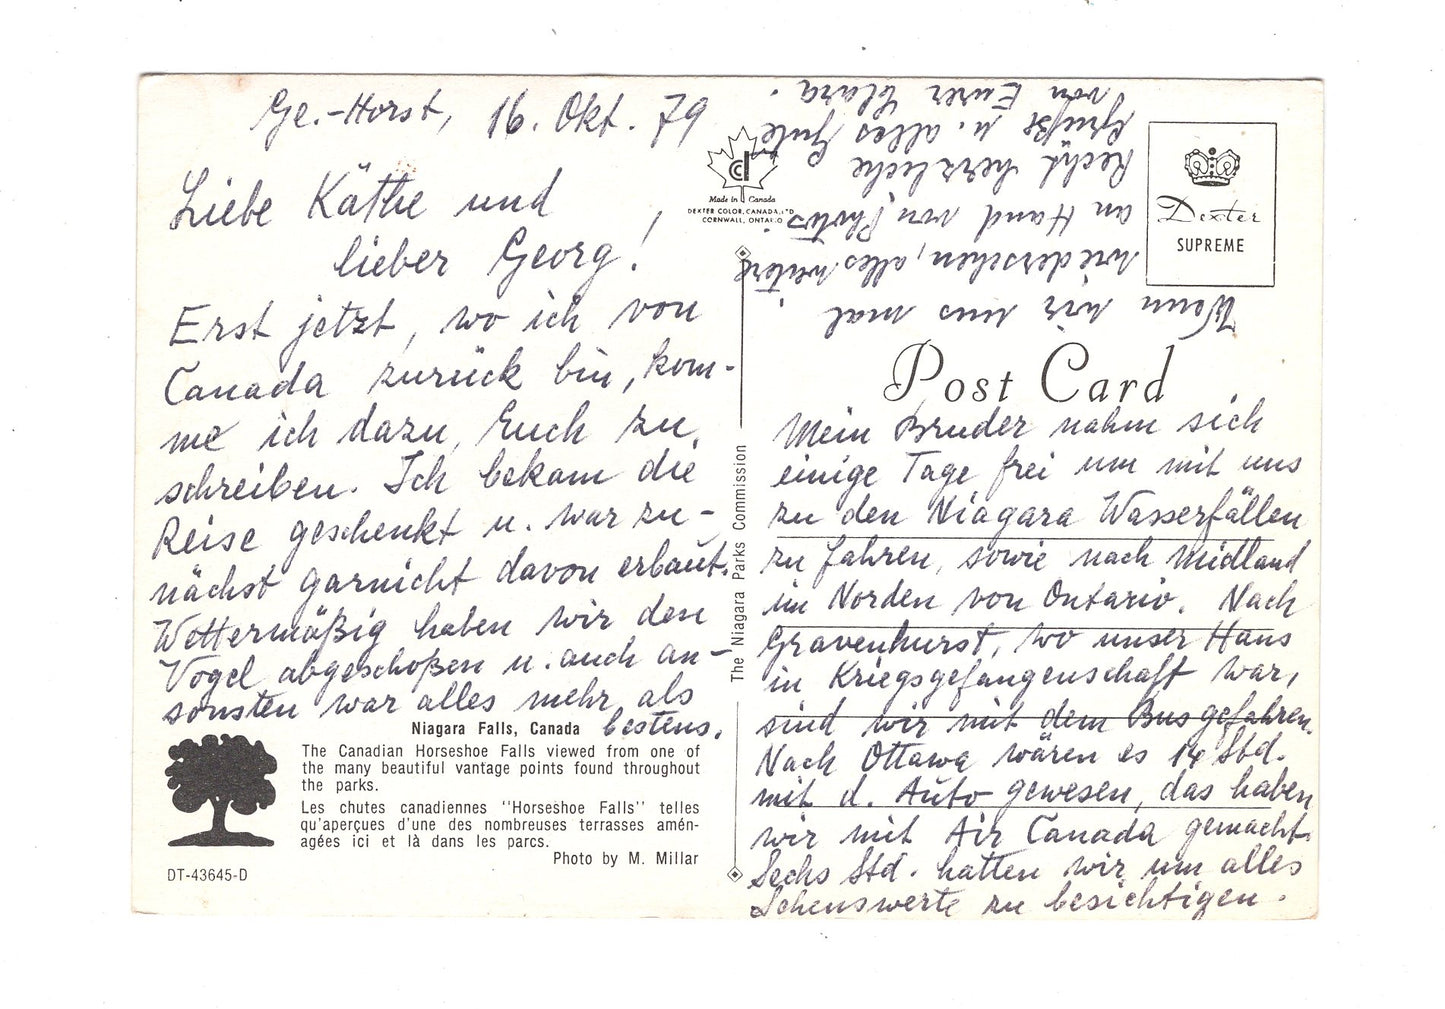 Ge.-Horst, 16. Okt. 79
Liebe Käthe und
lieber Georg!
Erst jetzt, wo ich von
Canada zurück bin, kom-
me ich dazu, Euch zu
schreiben. Ich bekam die
Reise geschenkt u. war zu-
nächst garnicht davon erbaut.
Wettermäßig haben wir den
Vogel abgeschoßen u. auch an-
sonsten war alles mehr als
bestens.
Niagara Falls, Canada
The Canadian Horseshoe Falls viewed from one of
the many beautiful vantage points found throughout
the parks.
Les chutes canadiennes "Horseshoe Falls" telles
qu'aperçues d'une des nombreuses terrasses amén-
agées ici et là dans les parcs.
Photo by M. Millar
DT-43645-D
The Niagara Parks Commission
Made in Canada
DEXTER COLOR, CANADA, LTD
CORNWALL, ONTARIO
Dexter
SUPREME
Post Card
Mein Bruder nahm sich
einige Tage frei um mit uns
zu den Niagara Wasserfällen
zu fahren, sowie nach Midland
im Norden von Ontario. Nach
Gravenhurst, wo unser Hans
in Kriegsgefangenschaft war,
sind wir mit dem Bus gefahren.
Nach Ottawa wären es 14 Std.
mit d. Auto gewesen, das haben
wir mit Air Canada gemacht.
Sechs Std. hatten wir um alles
Sehenswerte zu besichtigen.
Wenn wir uns mal
wiedersehen, alles weitere
an Hand von Photos!
Recht herzliche
Grüße u. alles Gute
von Eurer Klara.